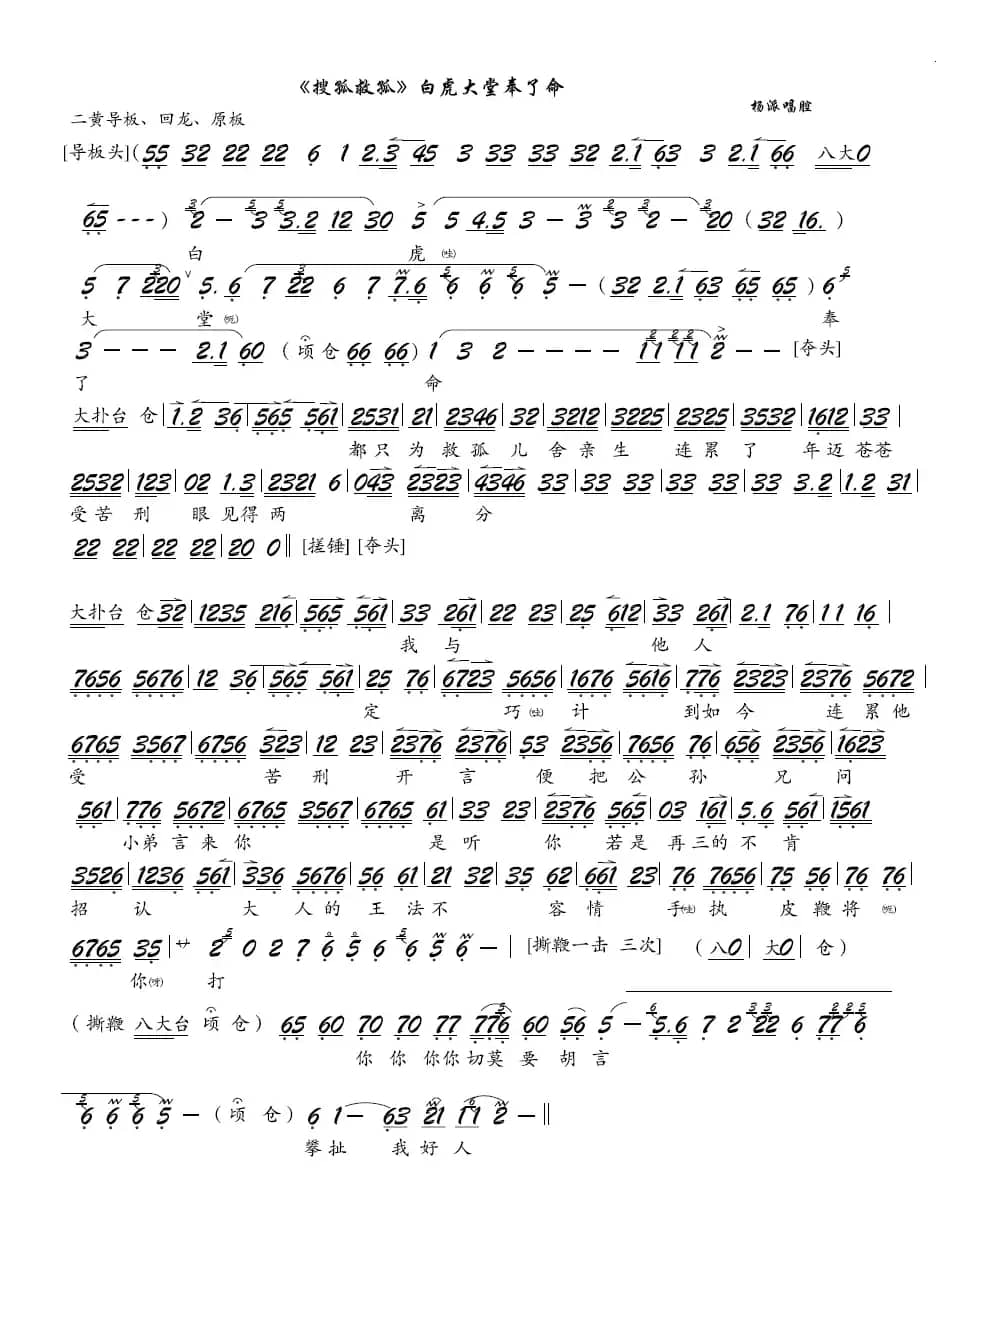 《搜孤救孤》白虎大堂奉了命
杨派唱腔
二黄导板、回龙、原板
[导板头](55 32 22 22 6 1 2.3 45 3 33 33 32 2.1 63 3 2.1 66 八大0
65 - - - ) 2 - 3 3.2 12 30 5 5 4.5 3 - 3 3 2 - 20 (32 16. )
白 虎(哇)
5 7 220 5. 6 7 22 6 7 7.6 6 6 6 5 - (32 2.1 63 65 65 ) 6
大 堂(呃) 奉
3 - - - 2.1 60 (顷仓 66 66) 1 3 2 - - - - 11 11 2 - - [夺头]
了 命
大扑台 仓 | 1.2 36 | 565 561 | 2531 21 | 2346 32 | 3212 3225 | 2325 3532 | 1612 33 |
都只为救孤儿舍亲生 连累了 年迈苍苍
2532 | 123 02 1.3 | 2321 6 | 043 2323 | 4346 33 | 33 33 | 33 33 | 33 3.2 | 1.2 31 |
受苦刑 眼见得两 离 分
22 22 | 22 22 | 20 0 ‖ [搓锤] [夺头]
大扑台 仓 32 | 1235 216 | 565 561 | 33 261 | 22 23 | 25 612 | 33 261 | 2.1 76 | 11 16 |
我与 他人
7656 5676 | 12 36 | 565 561 | 25 76 | 6723 5656 | 1676 5616 | 776 2323 | 2376 5672 |
定 巧(哇)计 到如今 连累他
6765 3567 | 6756 323 | 12 23 | 2376 2376 | 53 2356 | 7656 76 | 656 2356 | 1623
受 苦刑 开言便把公孙兄问
561 | 776 5672 | 6765 3567 | 6765 61 | 33 23 | 2376 565 | 03 161 | 5.6 561 | 1561
小弟言来你 是听 你若是再三的不肯
3526 | 1236 561 | 336 5676 | 56 61 | 21 32 | 35 62 | 661 23 | 76 7656 | 75 56 | 76 76 |
招认 大人的王法不 容情 手(哇)执 皮鞭将(呃)
6765 35 | サ 2 0 2 7 6 5 6 6 5 6 - | [撕鞭一击 三次] (八0 | 大0 | 仓)
你(呀) 打
(撕鞭 八大台 顷仓) 65 60 70 70 77 776 60 56 5 - 5.6 7 2 22 6 77 6
你你你你切莫要胡言
6 6 6 5 - (顷仓) 6 1 - 63 21 11 2 - ‖
攀扯 我好人